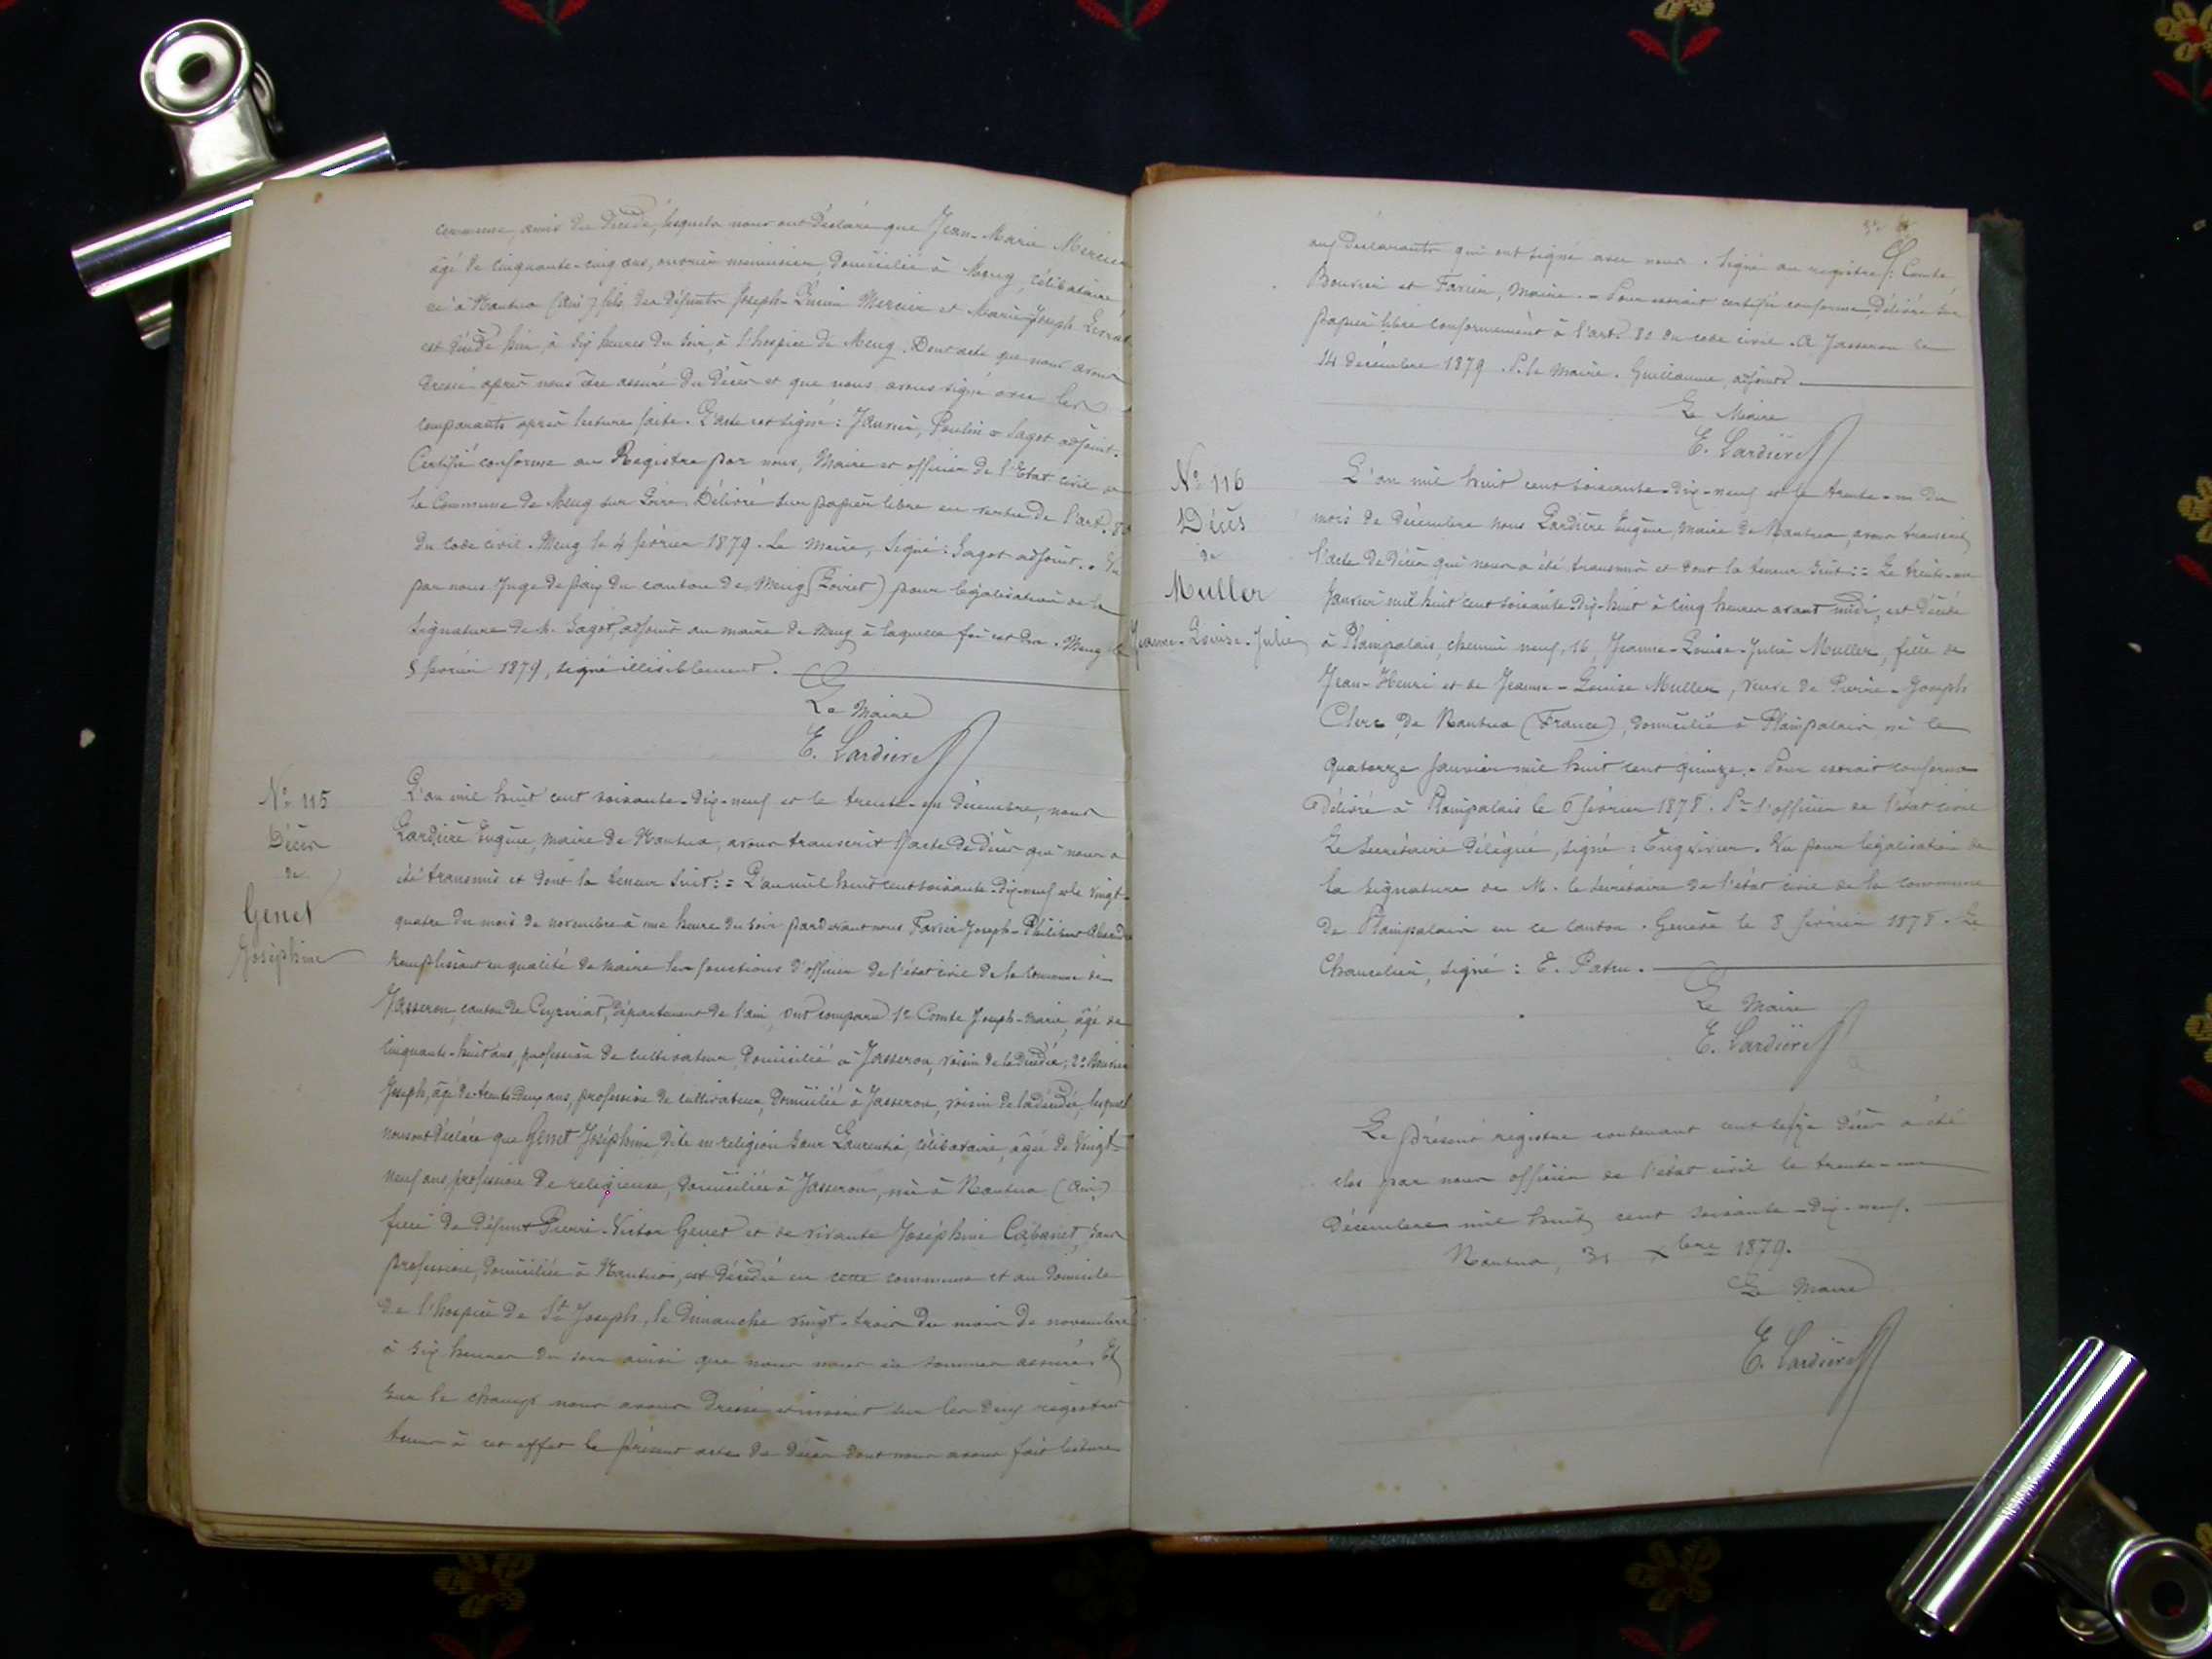 commune, amis du décédé, lesquels nous ont déclaré que Jean-Marie Mercier
âgé de cinquante-cinq ans, ouvrier menuisier, domicilié à Meung, célibataire
né à Nantua (Ain) fils des défunts Joseph- Mercier et Marie-Joseph Levrat
est décédé hier, à six heures du soir, à l'hospice de Meung. Dont acte que nous avons
dressé après nous être assuré du décès et que nous avons signé avec les
comparants après lecture faite. L'acte est signé : Jaunin, Poulin & Sagot adjoint.
Certifié conforme au Registre par nous, Maire et officier de l'Etat civil de
la Commune de Meung sur Loire. Délivré sur papier libre en vertu de l'art. 80
du Code civil. Meung le 4 février 1879. Le Maire, Signé : Sagot adjoint. - Vu
par nous Juge de paix du canton de Meung (Loiret) pour légalisation de la
signature de M. Sagot, adjoint au maire de Meung à laquelle foi est due. Meung le
5 février 1879, signé illisiblement.
Le Maire
E. Lardière
N° 115
Décès
de
Genet
Joséphine
L'an mil huit cent soixante-dix-neuf et le trente-un décembre, nous
Lardière Eugène, maire de Nantua, avons transcrit l'acte de décès qui nous a
été transmis et dont la teneur suit : = L'an mil huit cent soixante-dix-neuf et le vingt-
quatre du mois de novembre à une heure du soir pardevant nous Favier Joseph-Philibert
remplissant en qualité de maire les fonctions d'officier de l'état civil de la Commune de
Jasseron, canton de Ceyzériat, département de l'ain, ont comparu 1° Comte Joseph-Marie, âgé de
cinquante-huit ans, profession de cultivateur, domicilié à Jasseron, voisin de la décédée, 2° Bouvier
Joseph, âgé de trente deux ans, profession de cultivateur, domicilié à Jasseron, voisin de la décédée, lesquels
nous ont déclaré que Genet Joséphine dite en religion Sœur Laurentia, célibataire, âgée de vingt-
neuf ans, profession de religieuse, domiciliée à Jasseron, née à Nantua (Ain)
fille de défunt Pierre-Victor Genet et de vivante Joséphine Cabanet, sans
profession, domiciliée à Nantua, est décédée en cette commune et au domicile
de l'hospice de St Joseph, le dimanche vingt-trois du mois de novembre
à six heures du soir ainsi que nous nous en sommes assuré. Et
sur le champ nous avons dressé et inscrit sur les deux registres
tenus à cet effet le présent acte de décès dont nous avons fait lecture
aux déclarants qui ont signé avec nous. Signé au registre : Comte,
Bouvier et Favier, Maire. - Pour extrait certifié conforme, délivré sur
papier libre conformément à l'art. 80 du code civil. A Jasseron le
14 décembre 1879. P. le Maire. Guillaume, adjoint.
Le Maire
E. Lardière
N° 116
Décès
de
Muller
Jeanne-Louise-Julie
L'an mil huit cent soixante-dix-neuf et le trente-un du
mois de décembre nous Lardière Eugène, maire de Nantua, avons transcrit
l'acte de décès qui nous a été transmis et dont la teneur suit : = Le trente-un
Janvier mil huit cent soixante-dix-huit à cinq heures avant midi, est décédée
à Plainpalais, chemin neuf, 16, Jeanne-Louise-Julie Muller, fille de
Jean-Henri et de Jeanne-Louise Muller, veuve de Pierre-Joseph
Clerc, de Nantua (France), domiciliée à Plainpalais née le
quatorze janvier mil huit cent quinze. - Pour extrait conforme
Délivré à Plainpalais le 6 février 1878. Pr l'officier de l'état civil
Le Secrétaire délégué, signé : . Vu pour légalisation de
la signature de M. le Secrétaire de l'état civil de la commune
de Plainpalais en ce Canton. Genève le 8 février 1878. Le
Chancelier, signé : E. Patru.
Le Maire
E. Lardière
Le présent registre contenant cent seize décès a été
clos par nous officier de l'état civil le trente-un
Décembre mil huit cent soixante-dix-neuf.
Nantua, 31 Xbre 1879.
Le Maire
E. Lardière